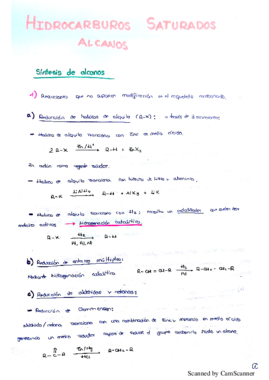 HIDROCARBUROS SATURADOS
ALCANOS
Síntesis de alcanos
1) Reacciones que no suponen modificación en el esqueleto carbonado.
a) Reducción de haluros de alquilo (R-X): a través de 3 reacciones
- Haluros de alquilo reaccionan con Zinc en medio ácido.
2 R-X Zn/H⁺ R-H + ZnX₂
Zn actúa como agente reductor.
- Haluros de alquilo reaccionan con hidruro de litio y aluminio.
R-X LiAlH₄ R-H + AlX₃ + LiX
- Haluros de alquilo reaccionan con H₂; necesita un catalizador que suelen ser
metales Hidrogenación catalítica
R-X H₂ R-H
b) Reducción de enlaces múltiples:
Mediante hidrogenación catalítica
R-CH=CH-R H₂ Pd R-CH₂-CH₂-R
c) Reducción de aldehídos y cetonas:
- Reducción de Clemmensen:
aldehído/cetona reaccionan con una combinación de Zinc y mercurio en medio ácido
generamos un medio reductor capaz de reducir el grupo carbonilo hasta un alcano.
R-C-R Zn/Hg HCl R-CH₂-R
Scanned by CamScanner